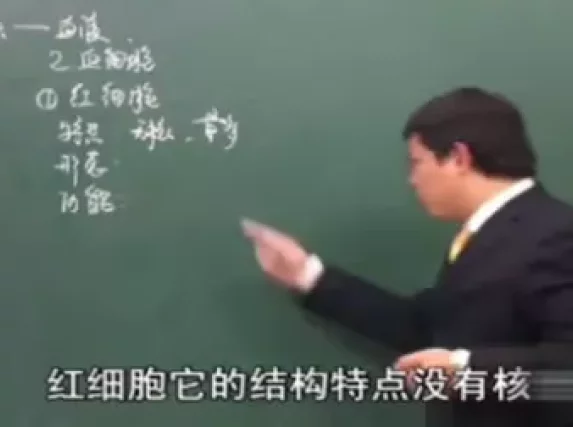 ——血液
2.血细胞
①红细胞
特点 无核、最多
形态:
功能:
红细胞它的结构特点没有核